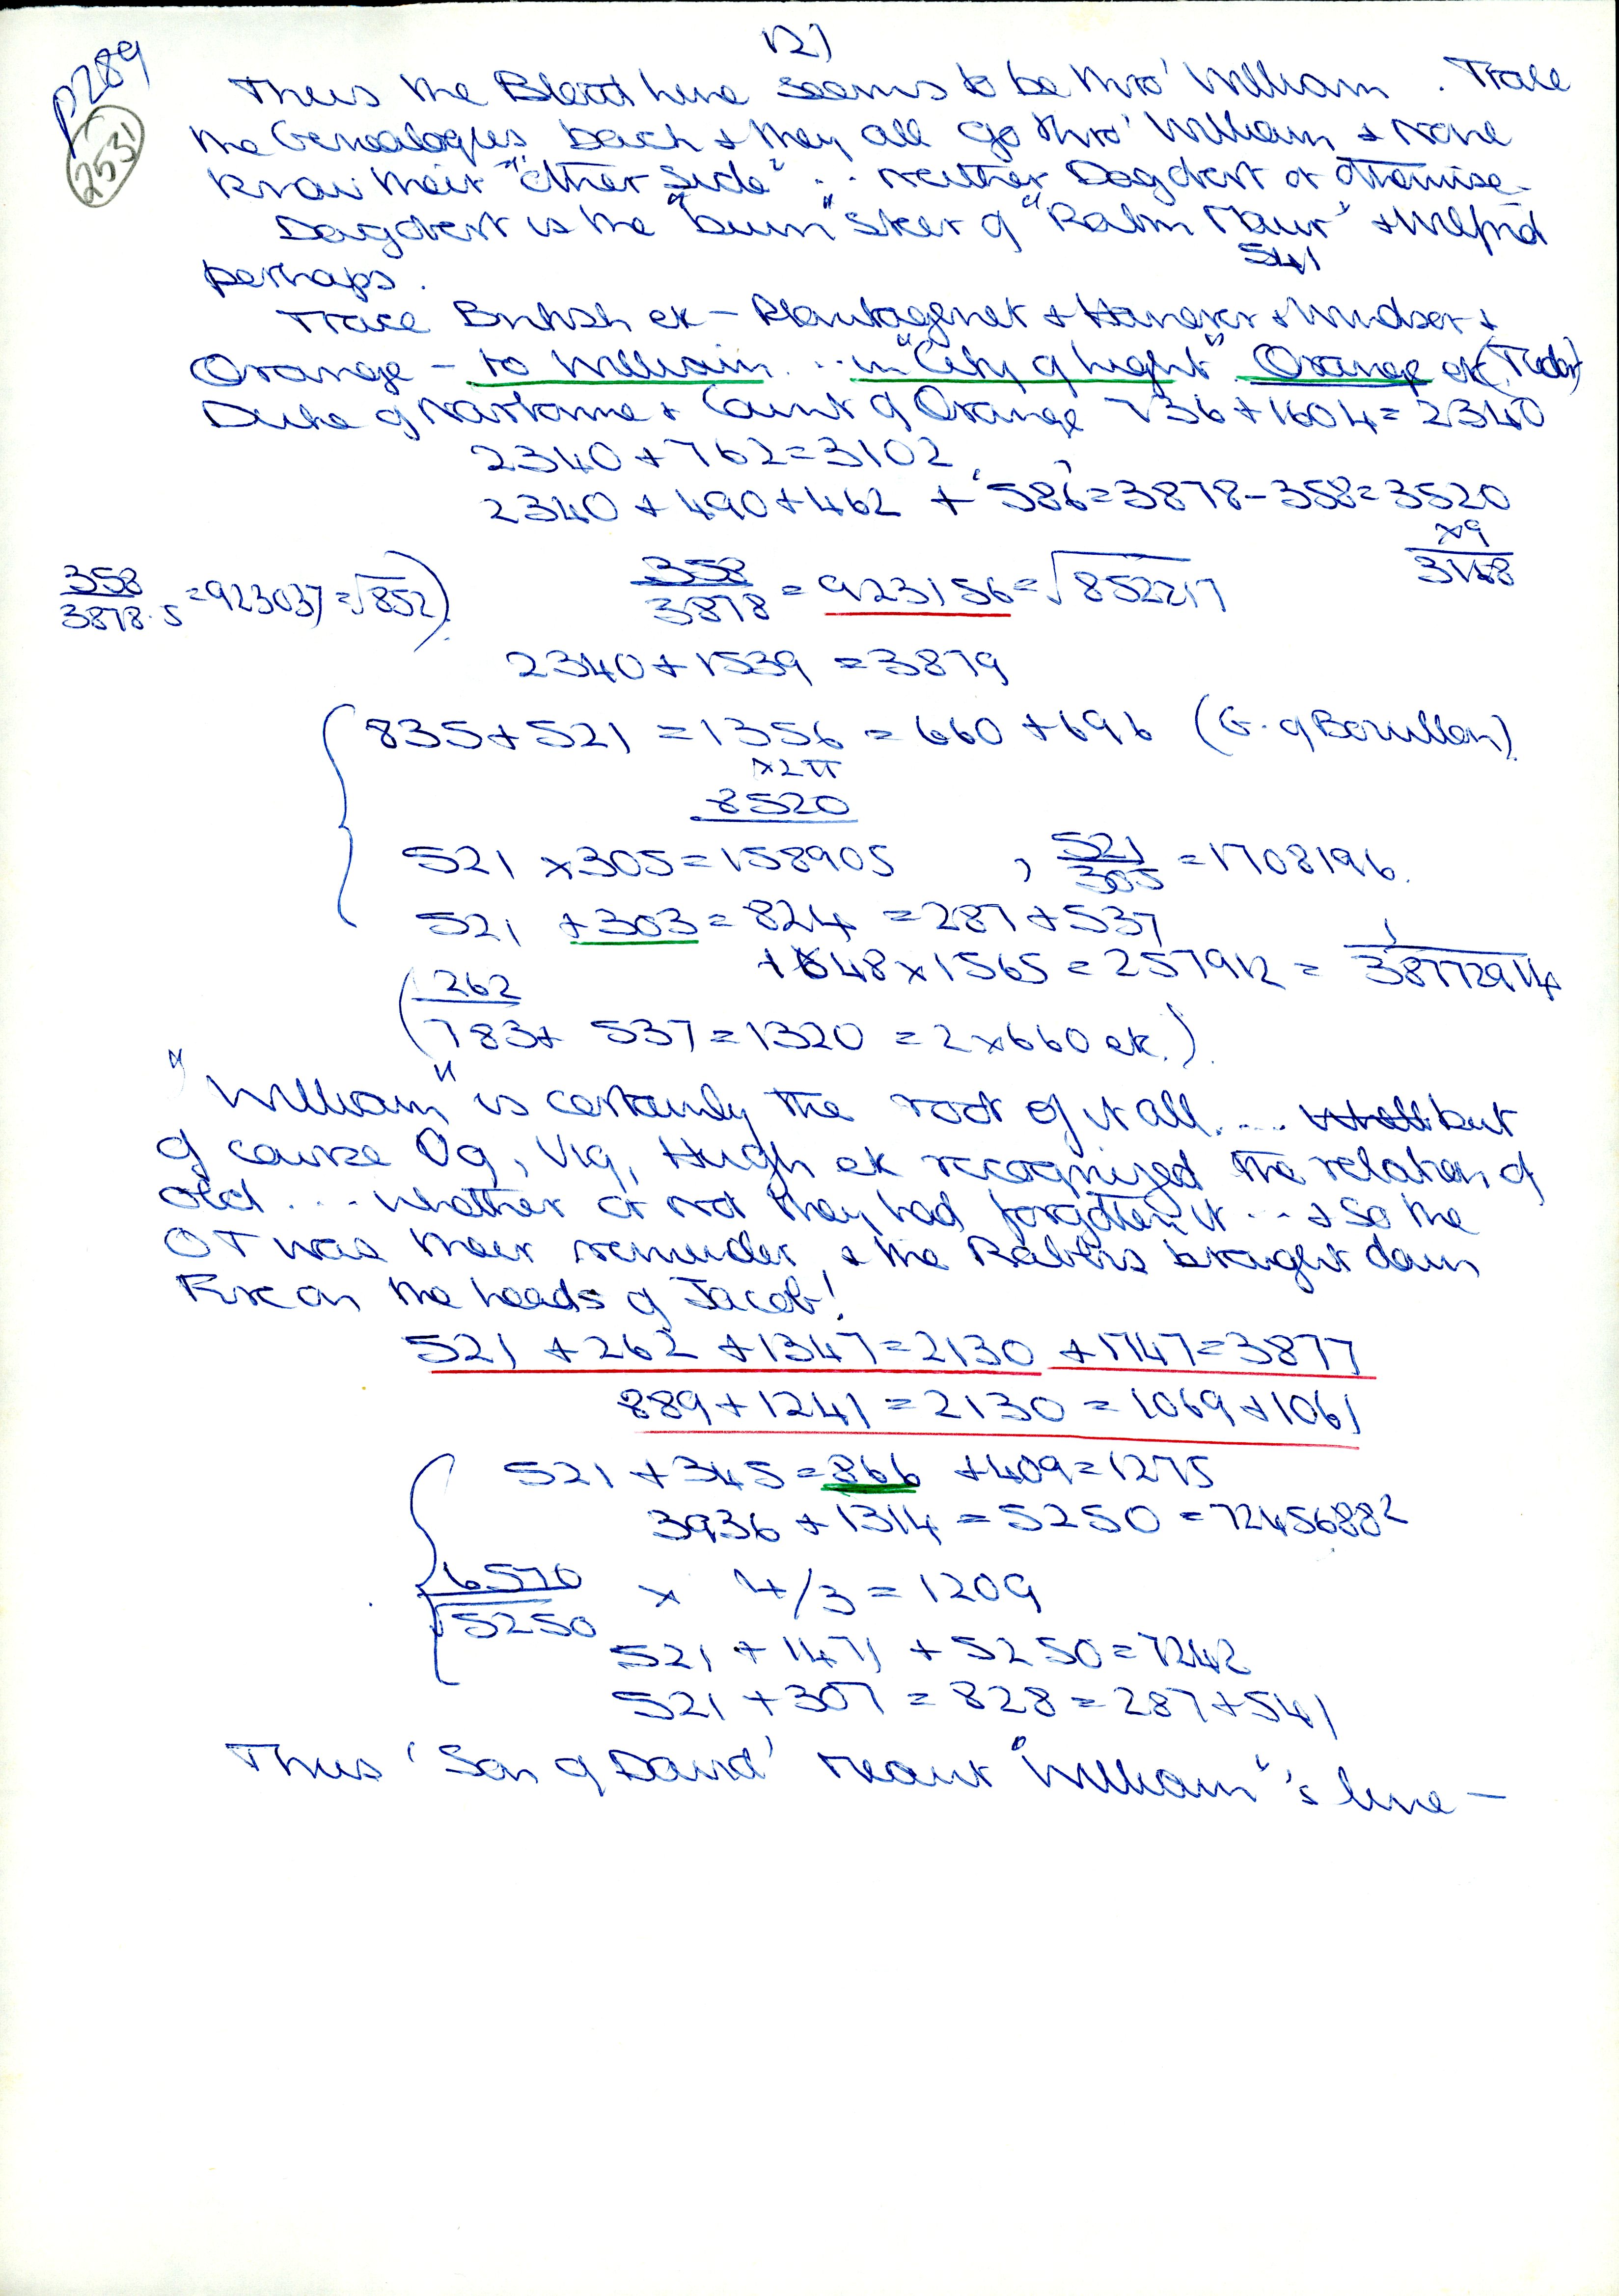 12)
p289
2531
Thus the Blood line seems to be thro' William . Trace
the Genealogies back & they all go thro' William & none
know their "other side" .. neither Dagobert or otherwise.
Dagobert is the "bum" steer of "Rabm Maur" & Wilfrid
541
perhaps.
Trace British etc – Plantagenet & Hanover & Windsor &
Orange – to William ... in "City of Light" Orange etc (Tudor)
Duke of Narbonne & Count of Orange 736 + 1604 = 2340
2340 + 762 = 3102
2340 + 490 + 462 + '586' = 3878 – 358 = 3520
×9
3168
358/3878.5 = 923037 = √852)
358/3878 = 923156 = √852217
2340 + 1539 = 3879
835 + 521 = 1356 = 660 + 696 (G. of Bouillon)
×2π
8520
521 × 305 = 158905 , 521/305 = 1708196.
521 + 303 = 824 = 287 + 537
1648 × 1565 = 257912 = 1/38772914
262
(783 + 537 = 1320 = 2×660 etc.)
"William" is certainly the root of it all .... but
of course Og, Vig, Hugh etc recognized the relation of
old ... whether or not they had forgotten it ... & so the
OT was their reminder & the Rabbis brought down
Fire on the heads of Jacob!
521 + 262 + 1347 = 2130 + 1747 = 3877
889 + 1241 = 2130 = 1069 + 1061
521 + 345 = 866 + 409 = 1275
3936 + 1314 = 5250 = 7245688²
6570/√5250 × 4/3 = 1209
521 + 1471 + 5250 = 7242
521 + 307 = 828 = 287 + 541
Thus 'Son of David' meant "William"'s line –